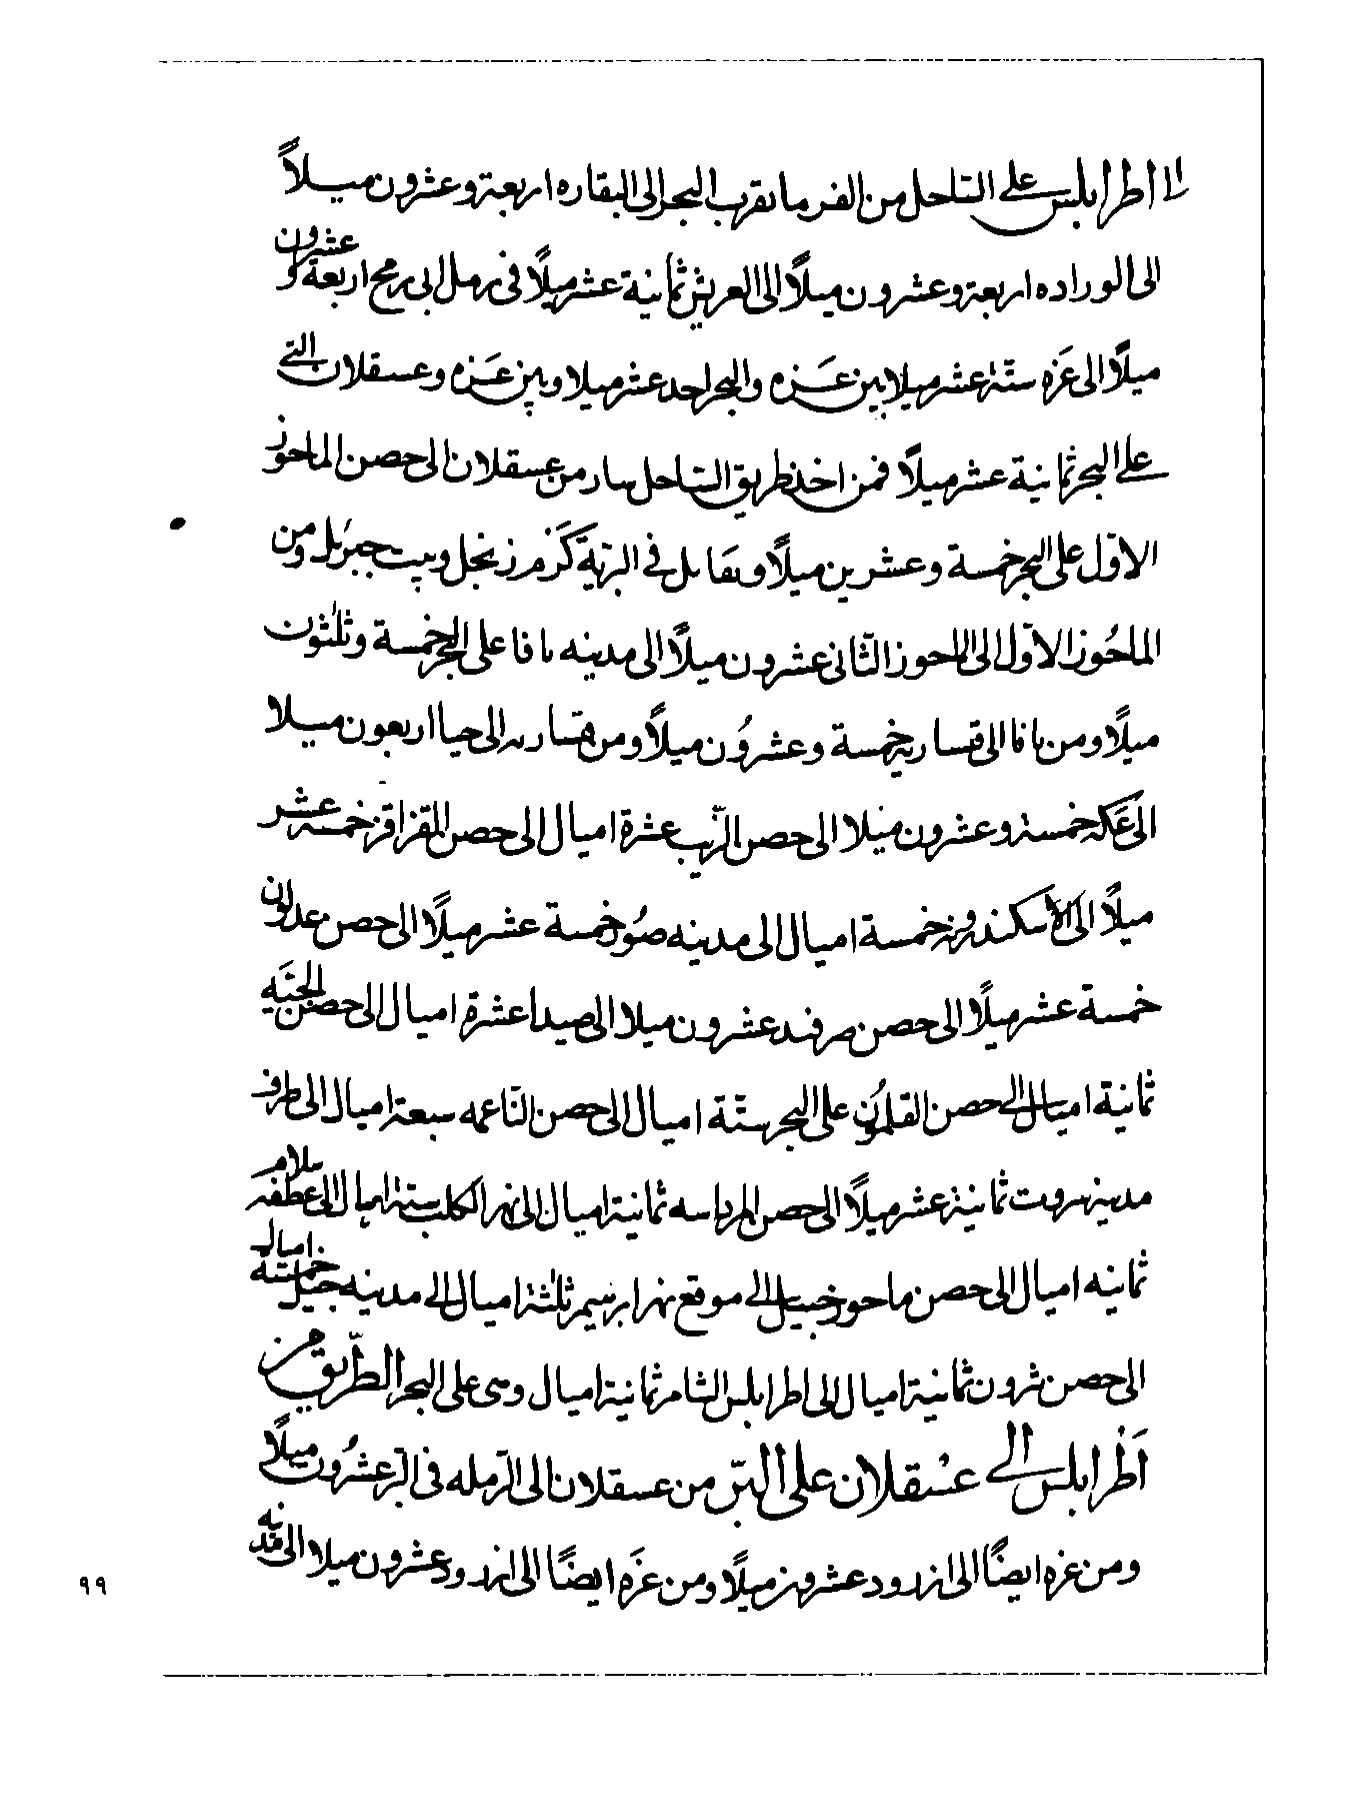 الى اطرابلس على الساحل من الفرما بقرب البحر الى البقاره اربعة وعشرون ميلاً
الى الوراده اربعة وعشرون ميلاً الى العريش ثمانية عشر ميلاً فى رمل الى رمح اربعة وعشرون
ميلاً الى غزه ستة عشر ميلا بين غزه والبحر احد عشر ميلا وبين غزه وعسقلان التى
على البحر ثمانية عشر ميلاً فمن اخذ طريق الساحل سار من عسقلان الى حصن الماحوز
الاول على البحر خمسة وعشرين ميلاً ويقابل فى البرية كرم نخل وبيت جبريل ومن
الماحُوز الاوّل الى الماحوز الثانى عشرون ميلاً الى مدينه يافا على البحر خمسة وثلثون
ميلاً ومن يافا الى قيساريه خمسة وعشرُون ميلاً ومن قيساريه الى حيفا اربعون ميلا
الى عكه خمسة وعشرون ميلا الى حصن الزيب عشرة اميال الى حصن خمسة عشر
ميلاً الى الاسكندرونه خمسة اميال الى مدينه صُور خمسة عشر ميلاً الى حصن عدلون
خمسة عشر ميلًا الى حصن صرفند عشرون ميلا الى صيدا عشرة اميال الى حصن الجيَه
ثمانية اميال الى حصن القلمُون على البحر ستّة اميال الى حصن النّاعمه سبعة اميال الى طرف
مدينة بيروت ثمانية عشر ميلاً الى حصن المرداسه ثمانية اميال الى نهر الكلب ستة اميال الى عطفه
ثمانيه اميال الى حصن ماحوز جبيل الى موقع نهر ابرهيم ثلثة اميال الى مدينه جبيل خمسة اميال
الى حصن بثرون ثمانية اميال الى اطرابلس الشام ثمانية اميال وهى على البحر الطّريق من
اَطْرابلس الى عسْقلان على البرّ من عسقلان الى الرّمله فى البر عشرُون ميلاً
ومن غزه ايضًا الى ازدود عشرون ميلًا ومن غزَه ايضًا الى ازدود عشرون ميلا الى مدينه
٩٩